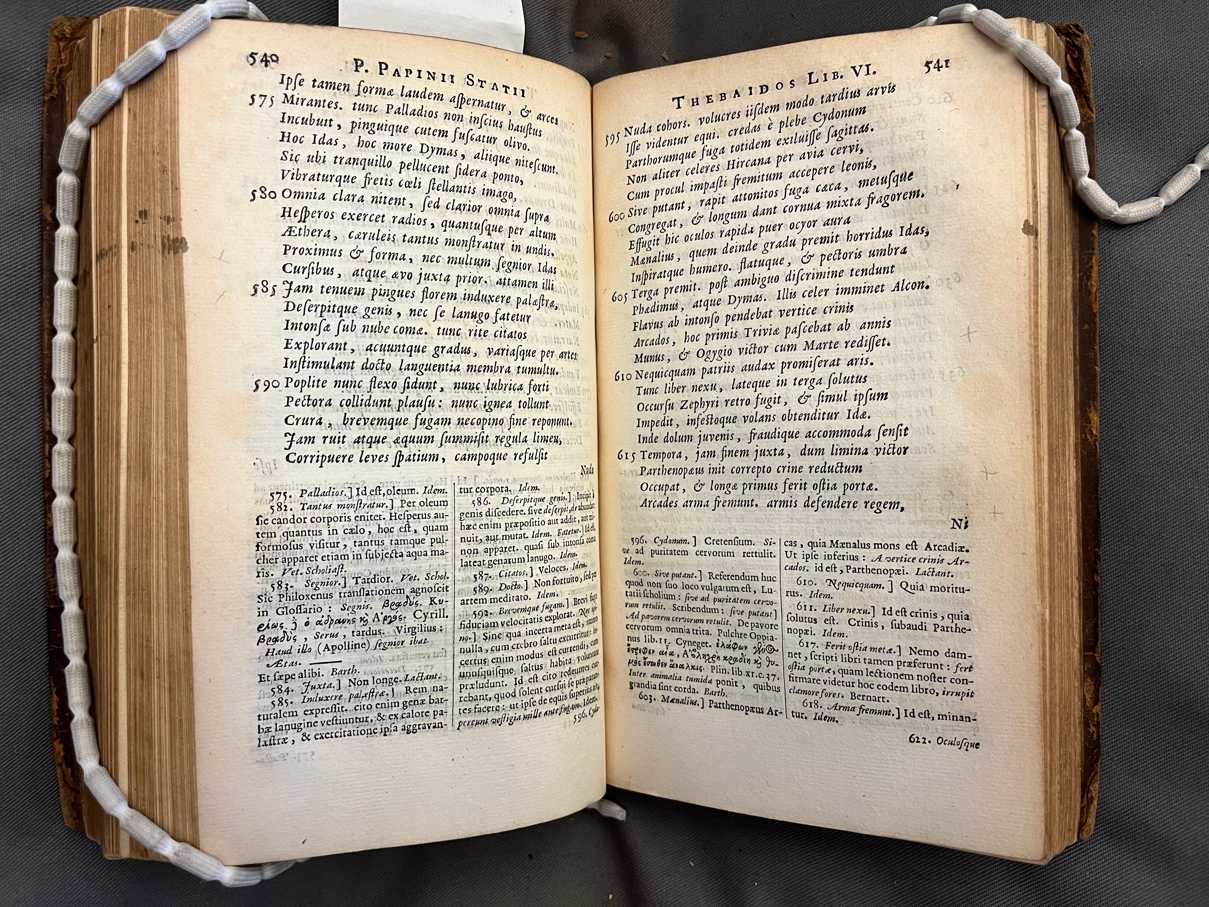 540
P. PAPINII STATII
Ipſe tamen formæ laudem aſpernatur, & arcet
575 Mirantes. tunc Palladios non inſcius hauſtus
Incubuit, pinguique cutem fuſcatur olivo.
Hoc Idas, hoc more Dymas, aliique niteſcunt.
Sic ubi tranquillo pellucent ſidera ponto,
Vibraturque fretis cœli ſtellantis imago,
580 Omnia clara nitent, ſed clarior omnia ſupra
Heſperos exercet radios, quantuſque per altum
Æthera, cæruleis tantus monſtratur in undis.
Proximus & forma, nec multum ſegnior Idas
Curſibus, atque ævo juxta prior. attamen illi
585 Jam tenuem pingues florem induxere palæſtræ,
Deſerpitque genis, nec ſe lanugo fatetur
Intonſæ ſub nube comæ. tunc rite citatos
Explorant, acuuntque gradus, variaſque per artes
Inſtimulant docto languentia membra tumultu.
590 Poplite nunc flexo ſidunt, nunc lubrica forti
Pectora collidunt plauſu: nunc ignea tollunt
Crura, brevemque fugam necopino fine reponunt.
Jam ruit atque æquum ſummiſit regula limen,
Corripuere leves ſpatium, campoque refulſit
Nuda
575. Palladios.] Id eſt, oleum. Idem.
581. Tantus monſtratur.] Per oleum
ſic candor corporis enitet. Heſperus au-
tem quantus in cælo, hoc eſt, quam
formoſus viſitur, tantus tamque pul-
cher apparet etiam in ſubjecta aqua ma-
ris. Vet. Scholiaſt.
583. Segnior.] Tardior. Vet. Schol.
Sic Philoxenus translationem agnoſcit
in Gloſſario: Segnis. βραδὺς. Κυ-
Cyrill.
βραδὺς, Serus, tardus. Virgilius:
Haud illo (Apolline) ſegnior ibat
Æneas.
Et ſæpe alibi. Barth.
584. Juxta.] Non longe. Lactant.
585. Induxere palæſtræ.] Rem na-
turalem expreſſit. cito enim genæ bar-
bæ lanugine veſtiuntur, & ex calore pa-
læſtræ, & exercitatione ipſa aggravan-
tur corpora. Idem.
586. Deſerpitque genis.] Incipit à
genis diſcedere. ſive deſerpit, de abundat
hæc enim præpoſitio aut addit, aut mi-
nuit, aut mutat. Idem. Fatetur.] Id eſt,
non apparet. quaſi ſub intonſa coma
lateat genarum lanugo. Idem.
587. Citatos.] Veloces. Idem.
589. Docto.] Non fortuito, ſed per
artem meditato. Idem.
592. Brevemque fugam.] Brevi fuga
fiduciam velocitatis explorat.
no.] Sine qua incerta meta eſt,
nulla, cum crebro ſaltu excurritur:
certus enim modus eſt currendi, cum
unuſquiſque ſaltus habita voluntate
præludunt. Id eſt cito reditum
rebant, quod ſolent curſui ſe præparan-
tes facere: ut ipſe de equis ſuperius
pereunt veſtigia mille ante fugam. Idem.
596. Cydo-
THEBAIDOS LIB. VI.
541
595 Nuda cohors. volucres iiſdem modo tardius arvis
Iſſe videntur equi. credas è plebe Cydonum
Parthorumque fuga totidem exiluiſſe ſagittas.
Non aliter celeres Hircana per avia cervi,
Cum procul impaſti fremitum accepere leonis,
600 Sive putant, rapit attonitos fuga cæca, metuſque
Congregat, & longum dant cornua mixta fragorem.
Effugit hic oculos rapida puer ocyor aura
Mænalius, quem deinde gradu premit horridus Idas,
Inſpiratque humero. flatuque, & pectoris umbra
605 Terga premit. poſt ambiguo diſcrimine tendunt
Phædimus, atque Dymas. Illis celer imminet Alcon.
Flavus ab intonſo pendebat vertice crinis
Arcados, hoc primis Triviæ paſcebat ab annis
Munus, & Ogygio victor cum Marte rediſſet.
610 Nequicquam patriis audax promiſerat aris.
Tunc liber nexu, lateque in terga ſolutus
Occurſu Zephyri retro fugit, & ſimul ipſum
Impedit, infeſtoque volans obtenditur Idæ.
Inde dolum juvenis, fraudique accommoda ſenſit
615 Tempora, jam finem juxta, dum limina victor
Parthenopæus init correpto crine reductum
Occupat, & longæ primus ferit oſtia portæ.
Arcades arma fremunt. armis defendere regem,
Ni
596. Cydonum.] Cretenſium. Si-
ve ad puritatem cervorum rettulit.
Idem.
600. Sive putant.] Referendum huc
quod non ſuo loco vulgatum eſt, Lu-
tatii ſcholium: ſive ad puritatem cervo-
rum retulit. Scribendum: ſive putant]
Ad pavorem cervorum retulit. De pavore
cervorum omnia trita. Pulchre Oppia-
nus lib. II. Cyneget.
Plin. lib XI. c. 37.
Inter animalia tumida ponit, quibus
grandia ſint corda. Barth.
603. Mænalius.] Parthenopæus Ar-
cas, quia Mænalus mons eſt Arcadiæ.
Ut ipſe inferius: A vertice crinis Ar-
cados. id eſt, Parthenopæi. Lactant.
610. Nequicquam.] Quia moritu-
rus. Idem.
611. Liber nexu.] Id eſt crinis, quia
ſolutus eſt. Crinis, ſubaudi Parthe-
nopæi. Idem.
617. Ferit oſtia metæ.] Nemo dam-
net, ſcripti libri tamen præferunt: fert
oſtia portæ, quam lectionem noſter con-
firmare videtur hoc eodem libro, irrupit
clamore fores. Bernart.
618. Arma fremunt.] Id eſt, minan-
tur. Idem.
622. Oculoſque